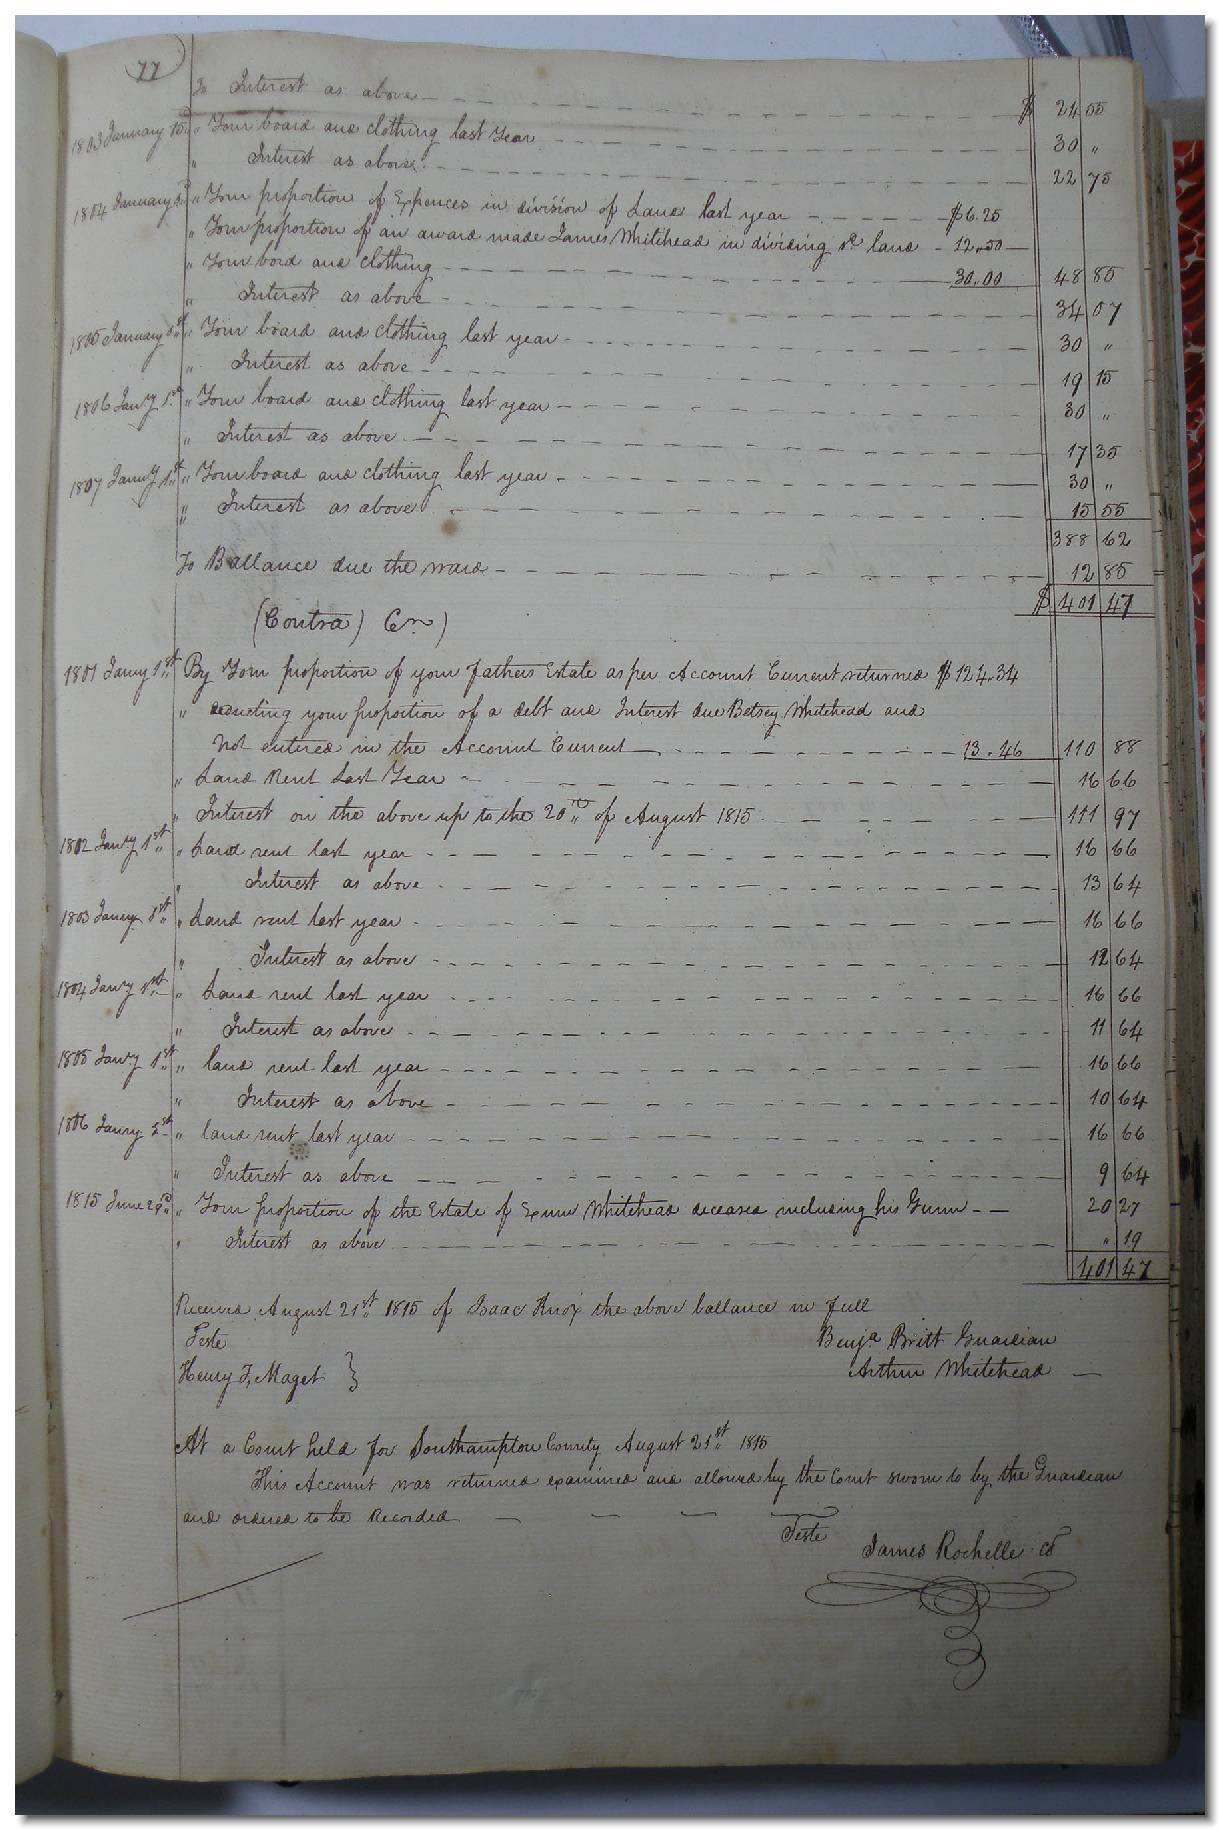 77
To Interest as above $ 24 55
1803 January 1st " Your board and clothing last Year 30 "
" Interest as above 22 75
1804 January 1st " Your proportion of Expences in division of Land last year $6.25
" Your proportion of an award made James Whitehead in dividing sd land 12.50
" Your bord and clothing 30.00 48 85
" Interest as above 34 07
1805 January 1st " Your board and clothing last year 30 "
" Interest as above 19 15
1806 Jany 1st " Your board and clothing last year 30 "
" Interest as above 17 35
1807 Jany 1st " Your board and clothing last year 30 "
" Interest as above 15 55
388 62
To Ballance due the ward 12 85
$ 401 47
(Contra) Cr)
1801 Jany 1st By Your proportion of your fathers Estate as per Account Current returned $124.34
" deducting your proportion of a debt and Interest due Betsey Whitehead and
Not entered in the Account Current 13.46 110 88
" Land Rent Last Year 16 66
" Interest on the above up to the 20th of August 1815 111 97
1802 Jany 1st " Land rent last year 16 66
" Interest as above 13 64
1803 Janry 1st " Land rent last year 16 66
" Interest as above 12 64
1804 Jany 1st " Land rent last year 16 66
" Interest as above 11 64
1805 Jany 1st " land rent last year 16 66
" Interest as above 10 64
1806 Janry 1st " land rent last year 16 66
" Interest as above 9 64
1815 June " Your proportion of the Estate of Exum Whitehead deceased including his Gunn 20 27
" Interest as above " 19
401 47
Received August 21st 1815 of Isaac Knox the above ballance in full
Teste Benja Britt Guardian
Henry F. Maget } Arthur Whitehead
At a Court held for Southampton County August 21st 1815
This Account was returned examined and allowed by the Court sworn to by the Guardian
and ordered to be Recorded
Teste
James Rochelle